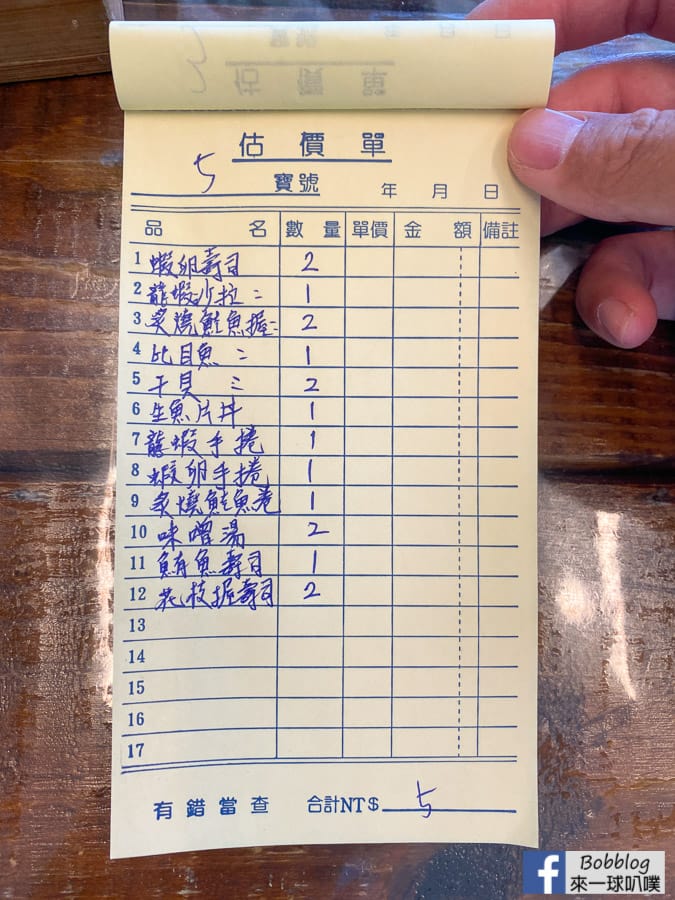 估價單
5 寶號 年 月 日
品名 數量 單價 金額 備註
1 蝦卵壽司 2
2 龍蝦沙拉 〃 1
3 炙燒鮭魚握〃 2
4 比目魚 〃 1
5 干貝 〃 2
6 生魚片丼 1
7 龍蝦手捲 1
8 蝦卵手捲 1
9 炙燒鮭魚卷 1
10 味噌湯 2
11 鮪魚壽司 1
12 花枝握壽司 2
13
14
15
16
17
有錯當查 合計NT$ 5
Bobblog
來一球叭噗